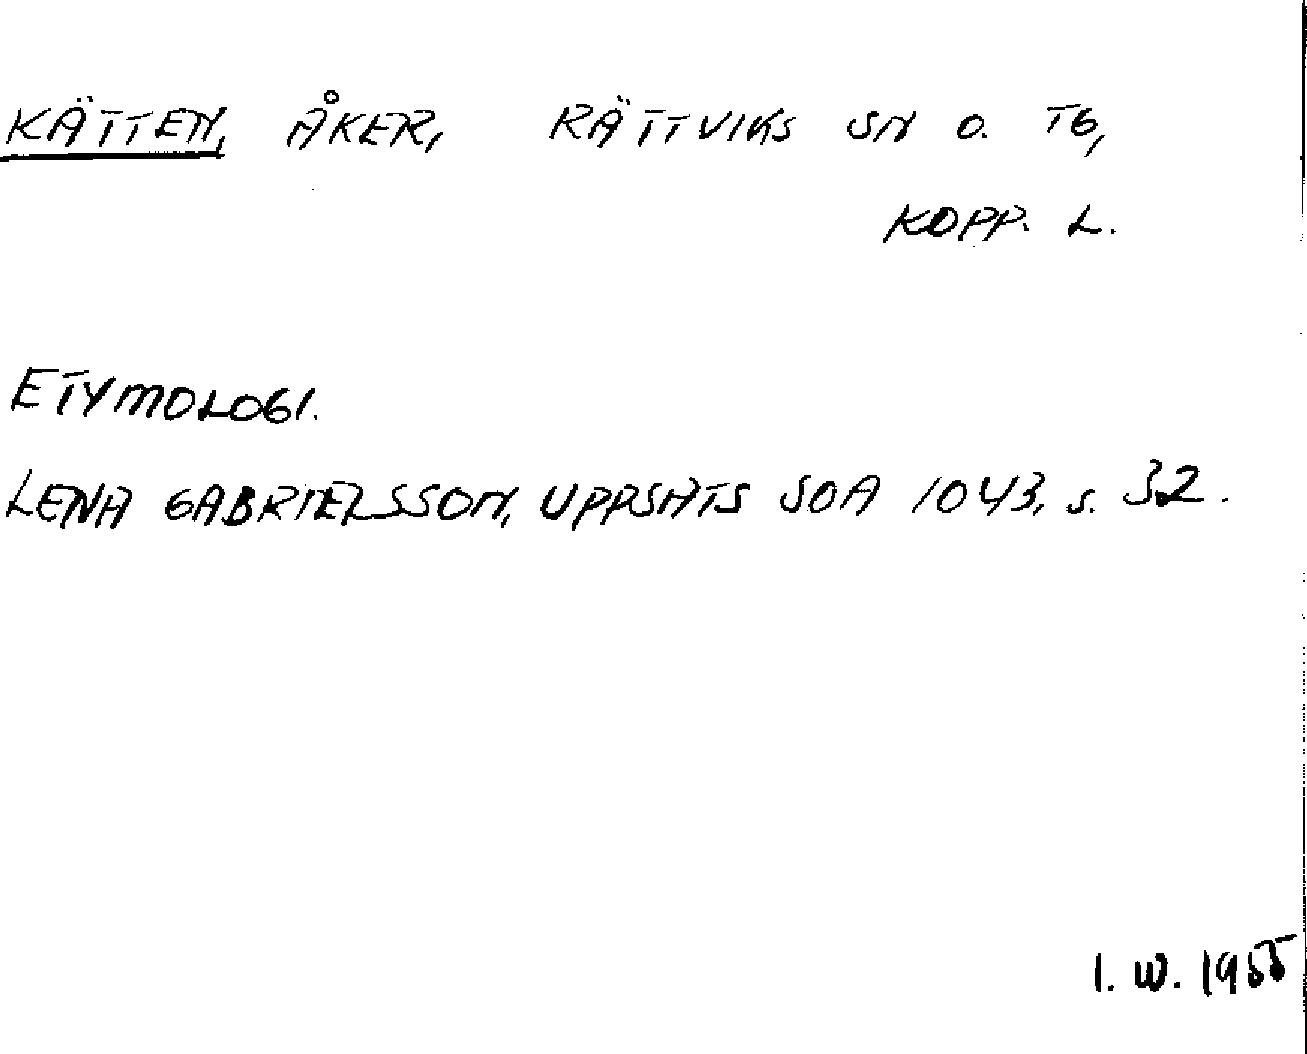 KÄTTEN, ÅKER, RÄTTVIKS SN O. TG,
KOPP. L.
ETYMOLOGI.
LENA GABRIELSSON, UPPSATS SOA 1043, S. 32.
I. W. 1955